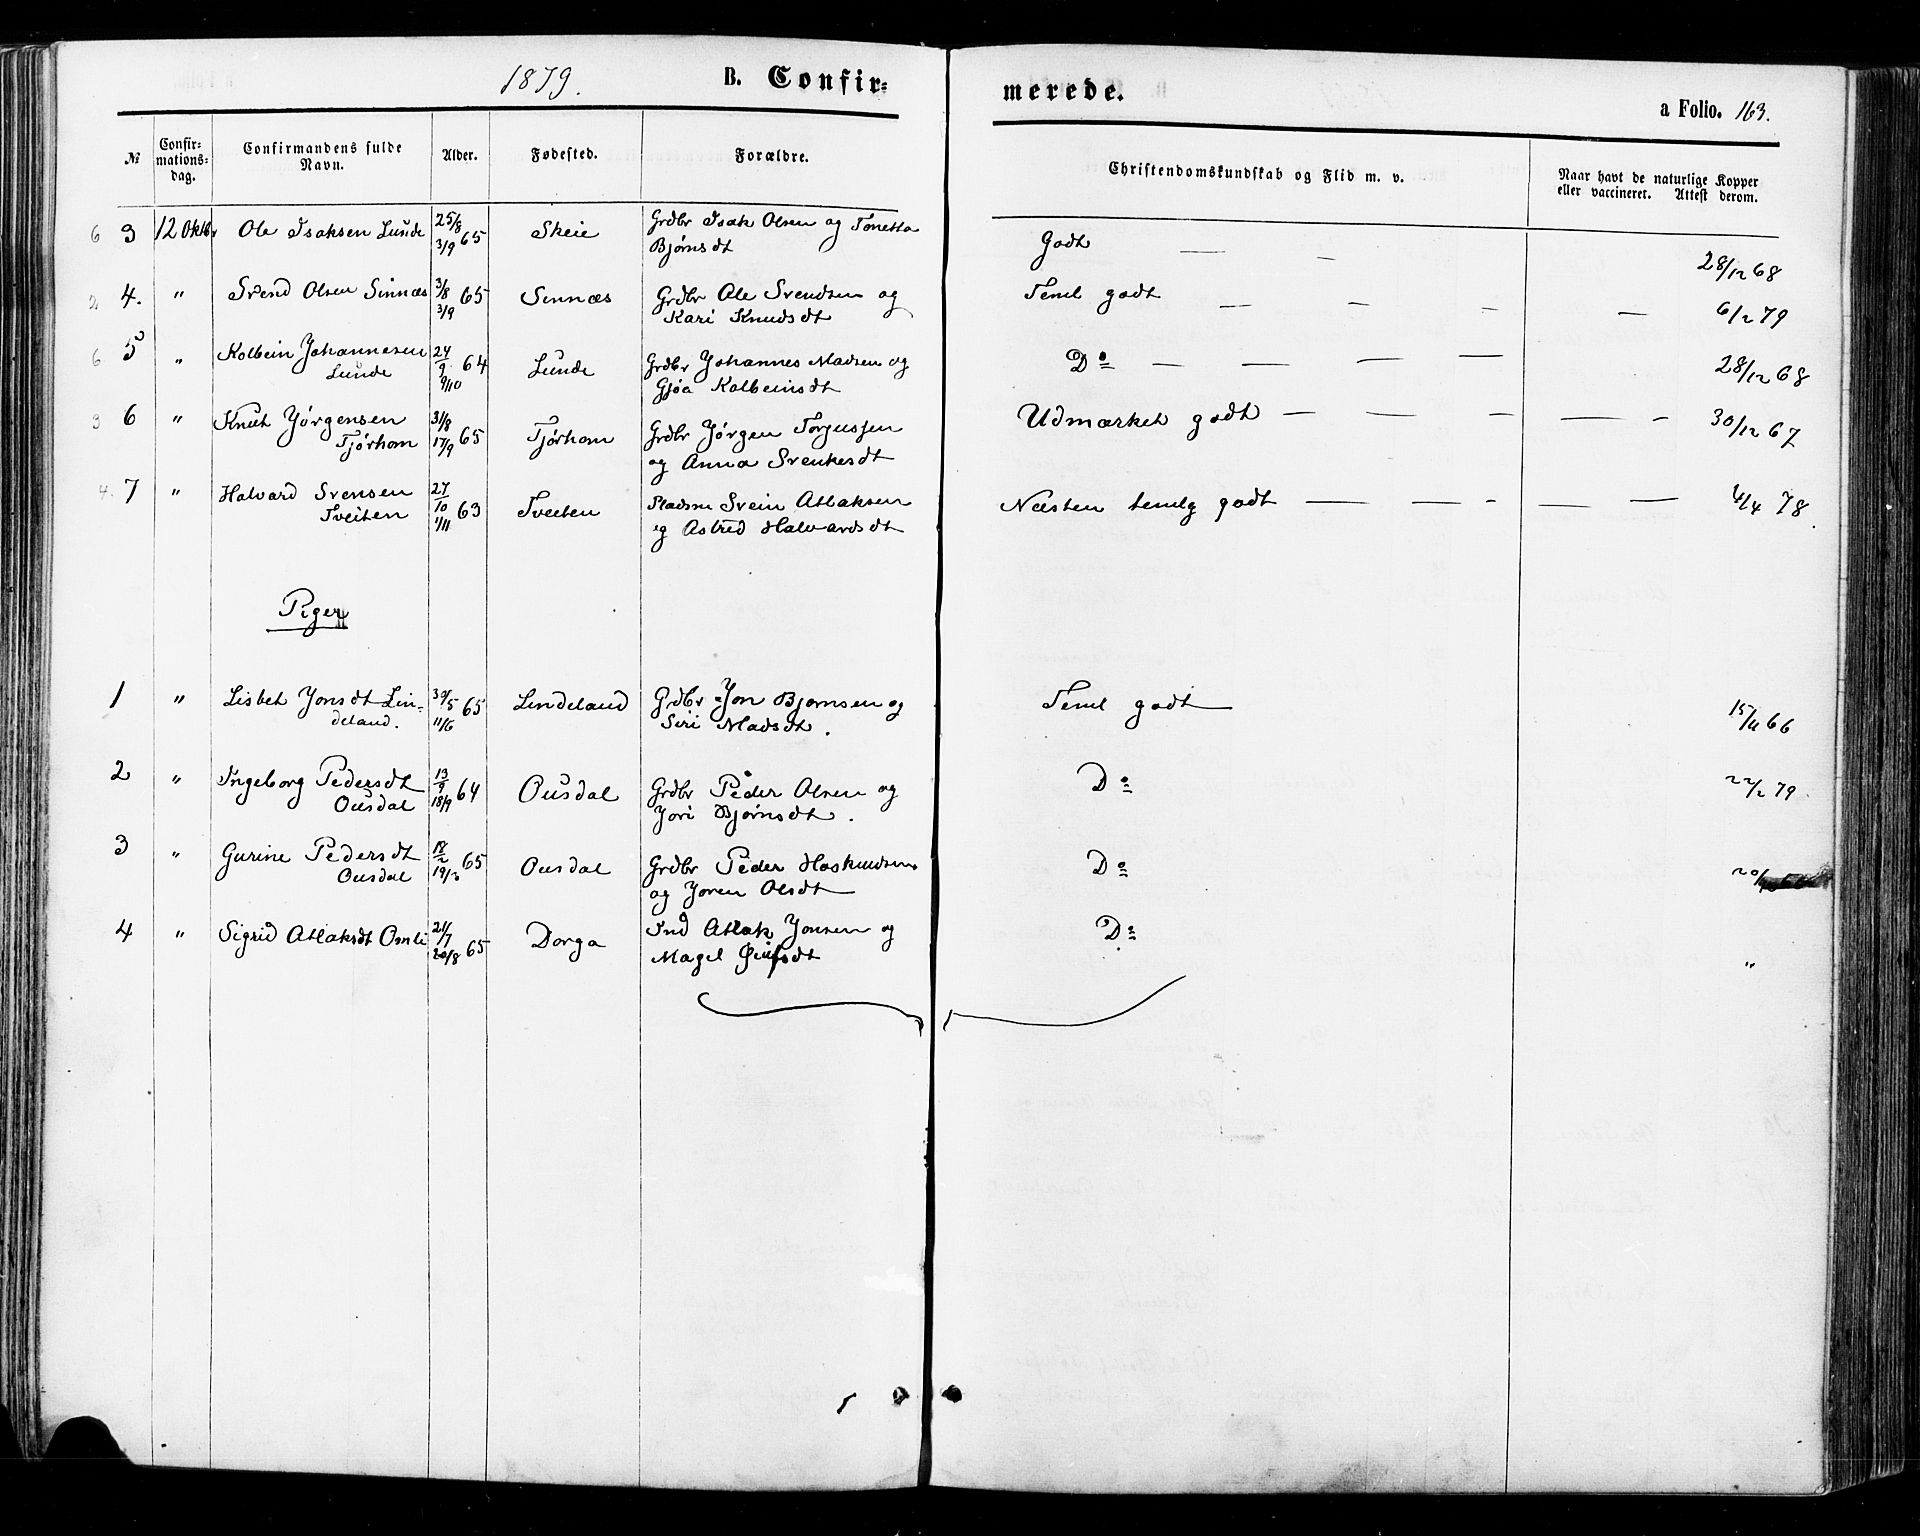 1879.
B. Confir=
merede.
a Folio. 163.
№
Confir-
mations-
dag.
Confirmandens fulde
Navn.
Alder.
Fødested.
Forældre.
Christendomskundskab og Flid m. v.
Naar havt de naturlige Kopper
eller vaccineret. Attest derom.
6 3 12 Oktbr Ole Isaksen Lunde 25/8 3/9 65 Skeie Grdbr Isak Olsen og Tonetta
Bjørnsdt Godt — — 28/12 68
2 4. " Svend Olsen Sinnæs 3/8 3/9 65 Sinnæs Grdbr Ole Svendsen og
Kari Knudsdt Teml godt — — — — 6/2 79
6 5 " Kolbein Johannesen
Lunde 24/9 9/10 64 Lunde Grdbr Johannes Madsen og
Gjøa Kolbeinsdt Do — — — — 28/12 68
3 6 " Knut Jørgensen
Tjørhom 31/8 17/9 65 Tjørhom Grdbr Jørgen Torjussen
og Anna Svenkesdt Udmærket godt — — — — - 30/12 67
4. 7 " Halvard Svensen
Tveiten 27/10 1/11 63 Tveiten Pladsm Svein Atlaksen
og Astred Halvardsdt Næsten temlg godt — — - — — 4/4 78
Piger
1 " Lisbet Jonsdt Lin-
deland. 30/5 11/6 65 Lindeland Grdbr Jon Bjørnsen og
Siri Madsdt. Teml godt 15/11 66
2 " Ingeborg Pedersdt
Ousdal 13/9 18/9 64 Ousdal Grdbr Peder Olsen og
Jori Bjørnsdt. Do 22/2 79
3 " Gurine Pedersdt
Ousdal 18/2 19/3 65 Ousdal Grdbr Peder Hoskuldsen
og Joren Olsdt Do
4 " Sigrid Atlaksdt Omli 21/7 20/8 65 Dorga Ind Atlak Jonsen og
Magel Do "